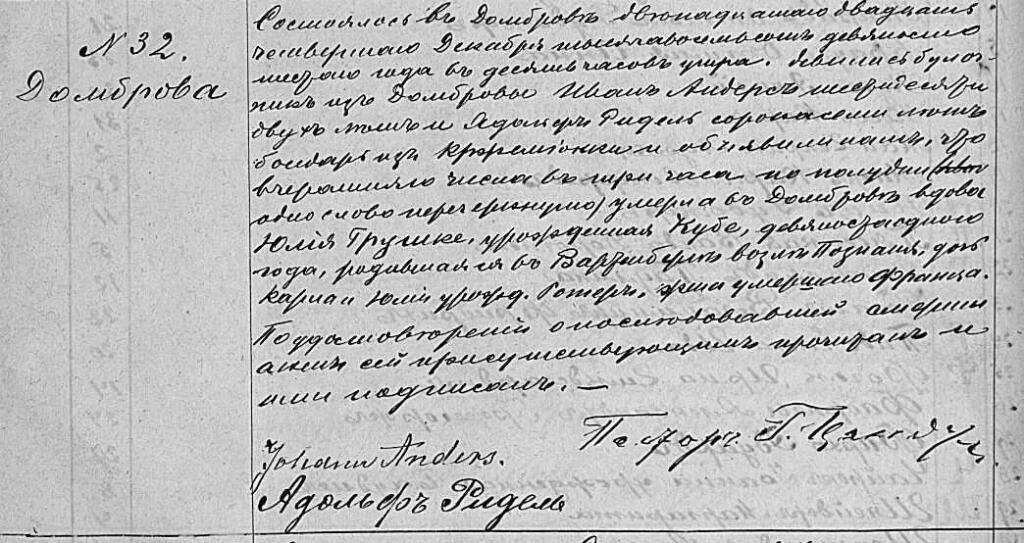 N 32.
Домброва
Состоялось въ Домбровѣ двенадцатаго двадцать
четвертаго Декабря тысяча восемьсотъ девяносто
шестаго года въ десять часовъ утра. Явились
никъ изъ Домбровы Иванъ Андерсъ шестидесяти
двухъ лѣтъ и Адольфъ Ридель сорока семи лѣтъ
бондарь изъ и объявили намъ, что
вчерашняго числа въ три часа по полудни
одно слово перечеркнуто) умерла въ Домбровѣ вдова
Юлія Грушке, урожденная Кубе, девяноста одного
года, родившаяся въ Вартенбергѣ возлѣ Познаня, дочь
Карла и Юліи урожд. жена умершаго Франца.
По удостовѣреніи о послѣдовавшей смерти
актъ сей присутствующимъ прочитанъ и
ими подписанъ. —
Пасторъ Г.
Johann Anders.
Адольфъ Ридель